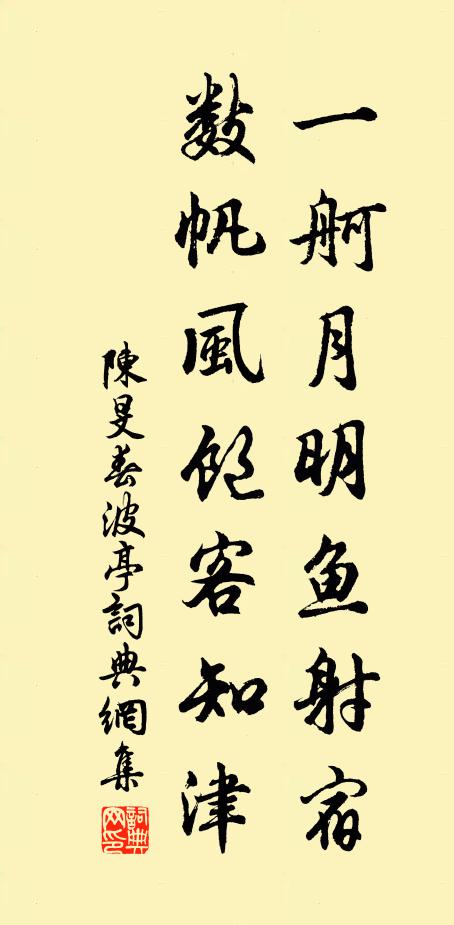 一舸月明鱼射宿
数帆風飽客知津
陳旻春波亭詞典網集
詞典网印